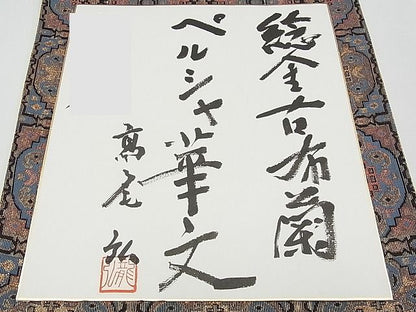 総金古布蘭
ペルシャ華文
高尾弘